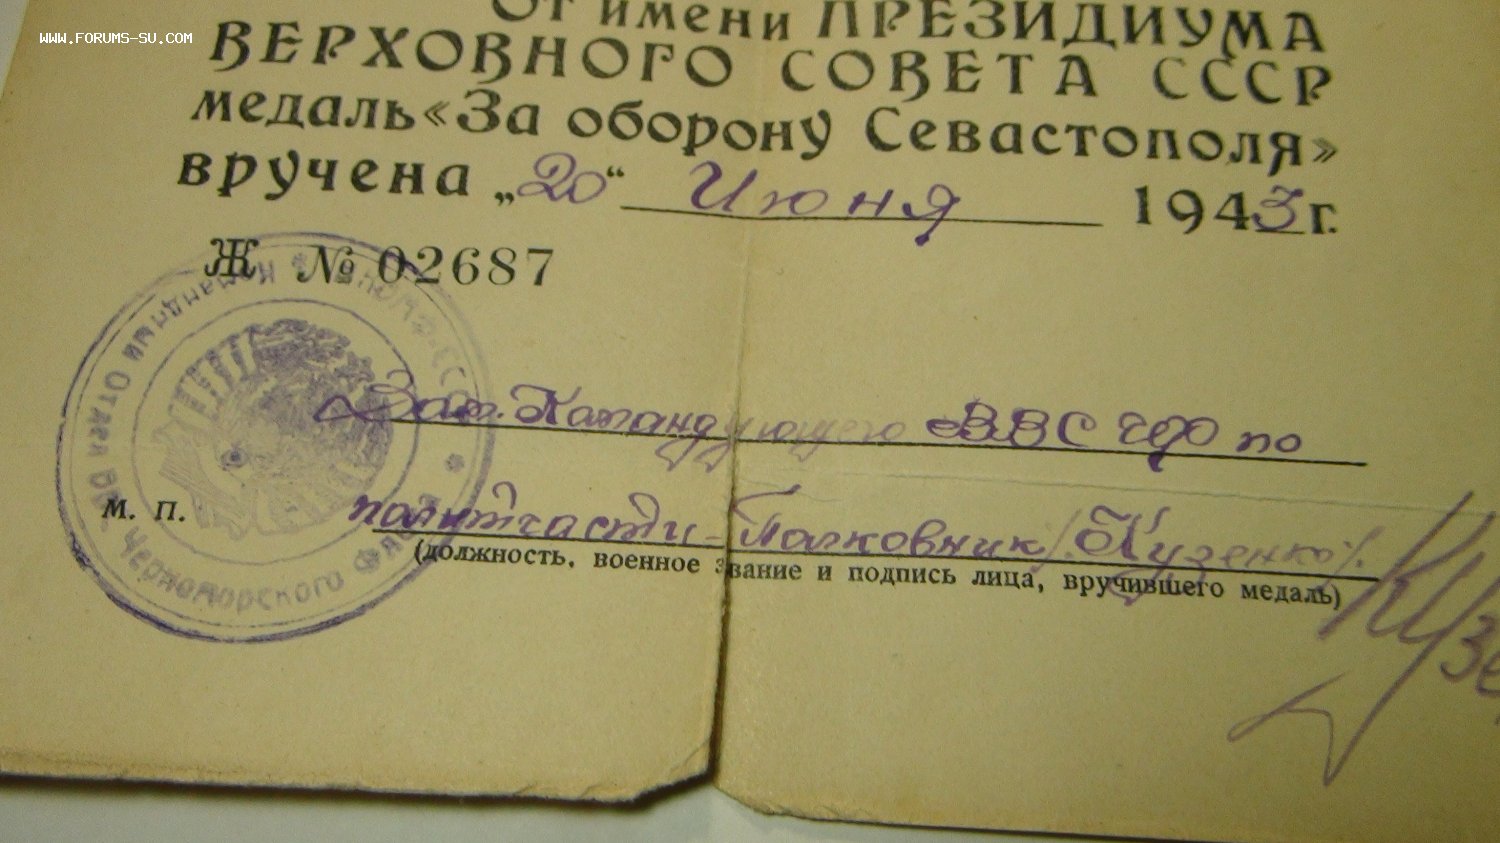 WWW.FORUMS-SU.COM
От имени ПРЕЗИДИУМА
ВЕРХОВНОГО СОВЕТА СССР
медаль «За оборону Севастополя»
вручена „20“ Июня 1943 г.
Ж № 02687
Командный Отдел ВВС Черноморского Флота
Зам. Командующего ВВС ЧФ по
М. П.
политчасти - Полковник /Кузенко/.
(должность, военное звание и подпись лица, вручившего медаль)